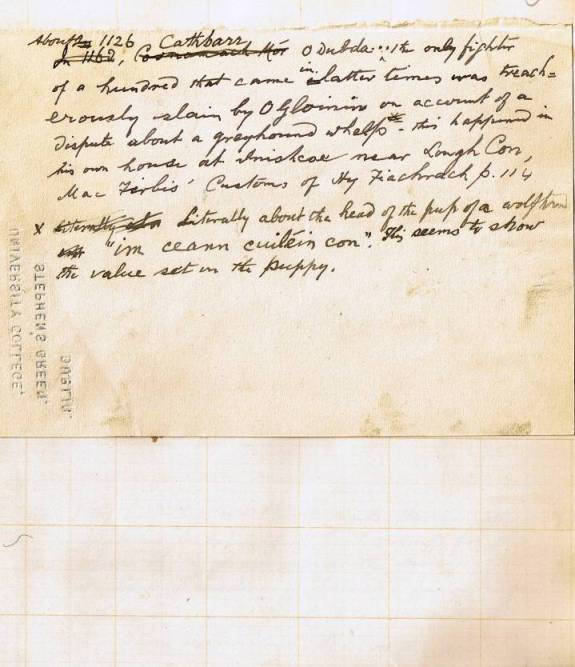 About 1126 Cathbarr
In 1162, Cosnamach Mór O Dubda .. the only fighter
of a hundred that came in latter times was treach=
erously slain by O Gloinin on account of a
dispute about a greyhound whelp x - this happened in
his own house at Inishcoe near Lough Con,
Mac Firbis' Customs of Hy Fiachrach p. 114
x Literally about the head of the pup of a wolfhound
"im ceann cuiléin con". This seems to show
the value set on the puppy.
UNIVERSITY COLLEGE,
STEPHEN'S GREEN,
DUBLIN.